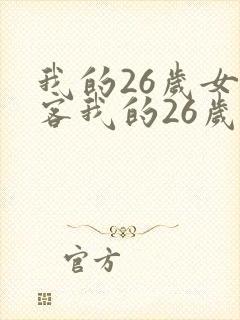 我的26歳女
客我的26歳
官方